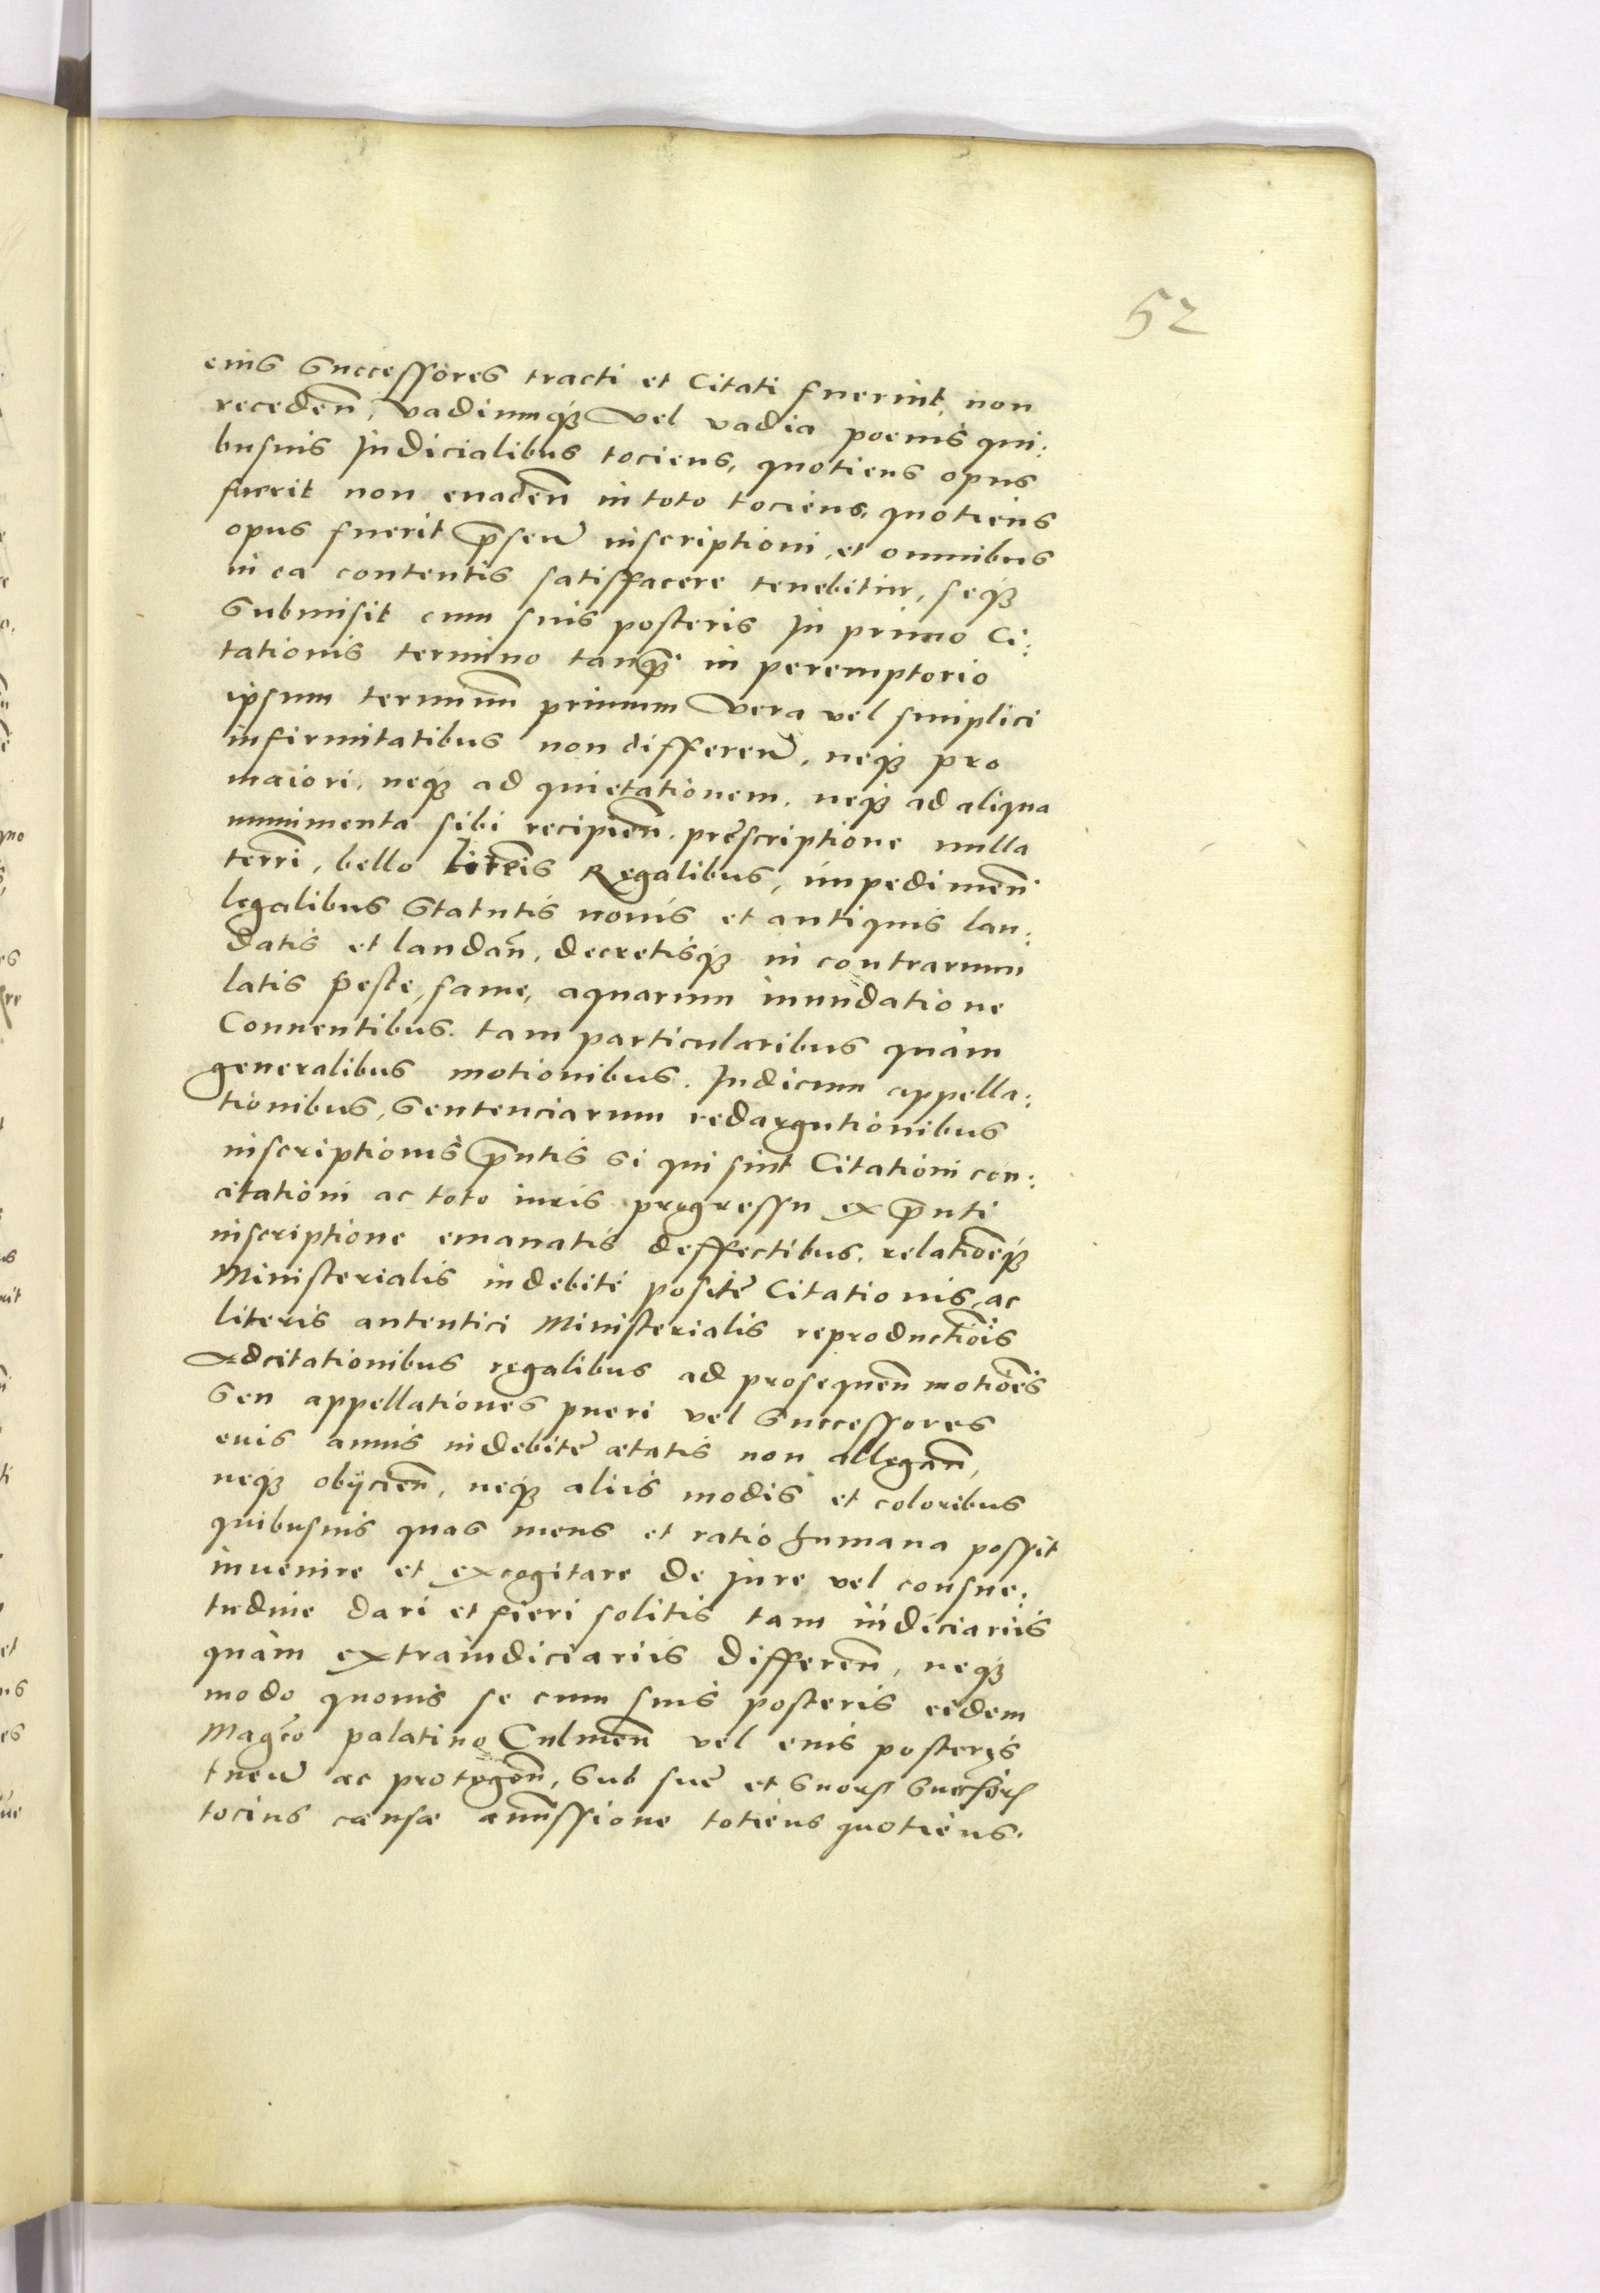 52
eius Successores tracti et Citati fuerint, non
recedeñ, vadiumq3 vel vadia poenis qui:
busuis Judicialibus tociens, quotiens opus
fuerit non euadeñ in toto tociens, quotiens
opus fuerit p̃señ inscriptioni, et omnibus
in ea contentis satisfacere tenebitur, seq3
Submisit cum suis posteris In primo Ci:
tationis termino tanq̃ in peremptorio
ipsum terminũ primum vera vel simplici
infirmitatibus non differeñ, neq3 pro
maiori, neq3 ad quietationem, neq3 ad aliqua
munimenta sibi recipieñ. prescriptione nulla
terri, bello literis Regalibus, impedimeñ
legalibus Statutis nouis et antiquis lau:
datis et laudañ, decretisq3 in contrarium
latis peste, fame, aquarum inundatione
Conuentibus. tam particularibus quàm
generalibus motionibus. Judicum appella:
tionibus, Sentenciarum redargutionibus
inscriptionis p̃ntis si qui sint Citationi con:
citationi ac toto iuris progressu ex p̃nti
inscriptione emanatis deffectibus. relationẽq3
Ministerialis indebite positę Citationis, ac
literis autentici Ministerialis reproductiõis
Adcitationibus regalibus ad prosequeñ motiões
Seu appellationes pueri vel Successores
euis annis indebitę ætatis non allegañ,
neq3 obijcieñ, neq3 aliis modis et coloribus
quibusuis quas mens et ratio humana possit
inuenire et excogitare de Jure vel consue:
tudine dari et fieri solitis tam iudiciariis
quàm extraiudiciariis differeñ, neq3
modo quouis se cum suis posteris eidem
Mag̃co palatino Culmeñ vel eius posteris
tueñ ac protegeñ, Sub suę et Suorũ Succesorũ
tocius causæ amissione totiens quotiens.